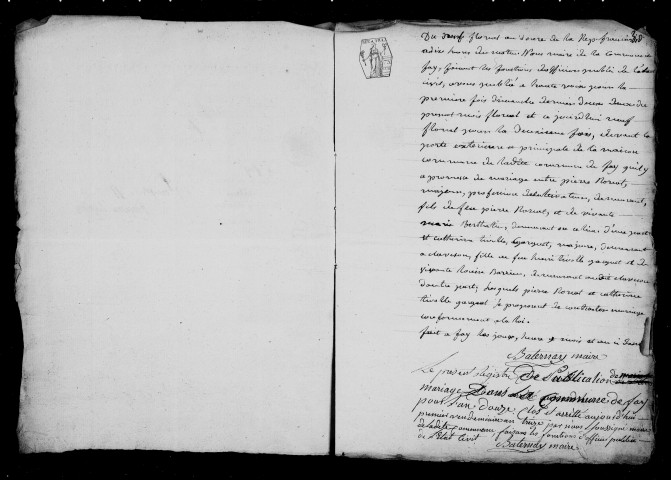 Du neuf floreal an douze de la Rep. francaise
a dix heures du matin Nous maire de la commune de
fay, faisant les fonctions d'officier public de l'etat
civil, avons publié a haute voix pour la
premiere fois dimanche dernier deux du
present mois floreal et ce jourd'huy neuf
floreal pour la deuxieme fois, devant la
porte exterieure et principale de la maison
commune de ladite commune de fay qu'il y
a promesse de mariage entre pierre
majeur, profession de cultivateur, demeurant
fils de feu pierre et de vivante
marie Berthet, demeurant d'une part
et catherine majeure, demeurant
a claveson, fille de feu et de
vivante Barrier, demeurant audit claveson
d'autre part; lesquels pierre et catherine
se proposent de contracter mariage
conformement a la loi.
fait a fay les jour, heure, mois et an ci dessus
Baternay maire
Le present registre De Publication de
mariage Dans La Commune de fay
pour l'an Douze Clos et arretté aujourd'hui
premier vendemiaire an treize par nous soussigné maire
de ladite commune faisant les fonctions d'officier public
de l'Etat Civil
Baternay maire